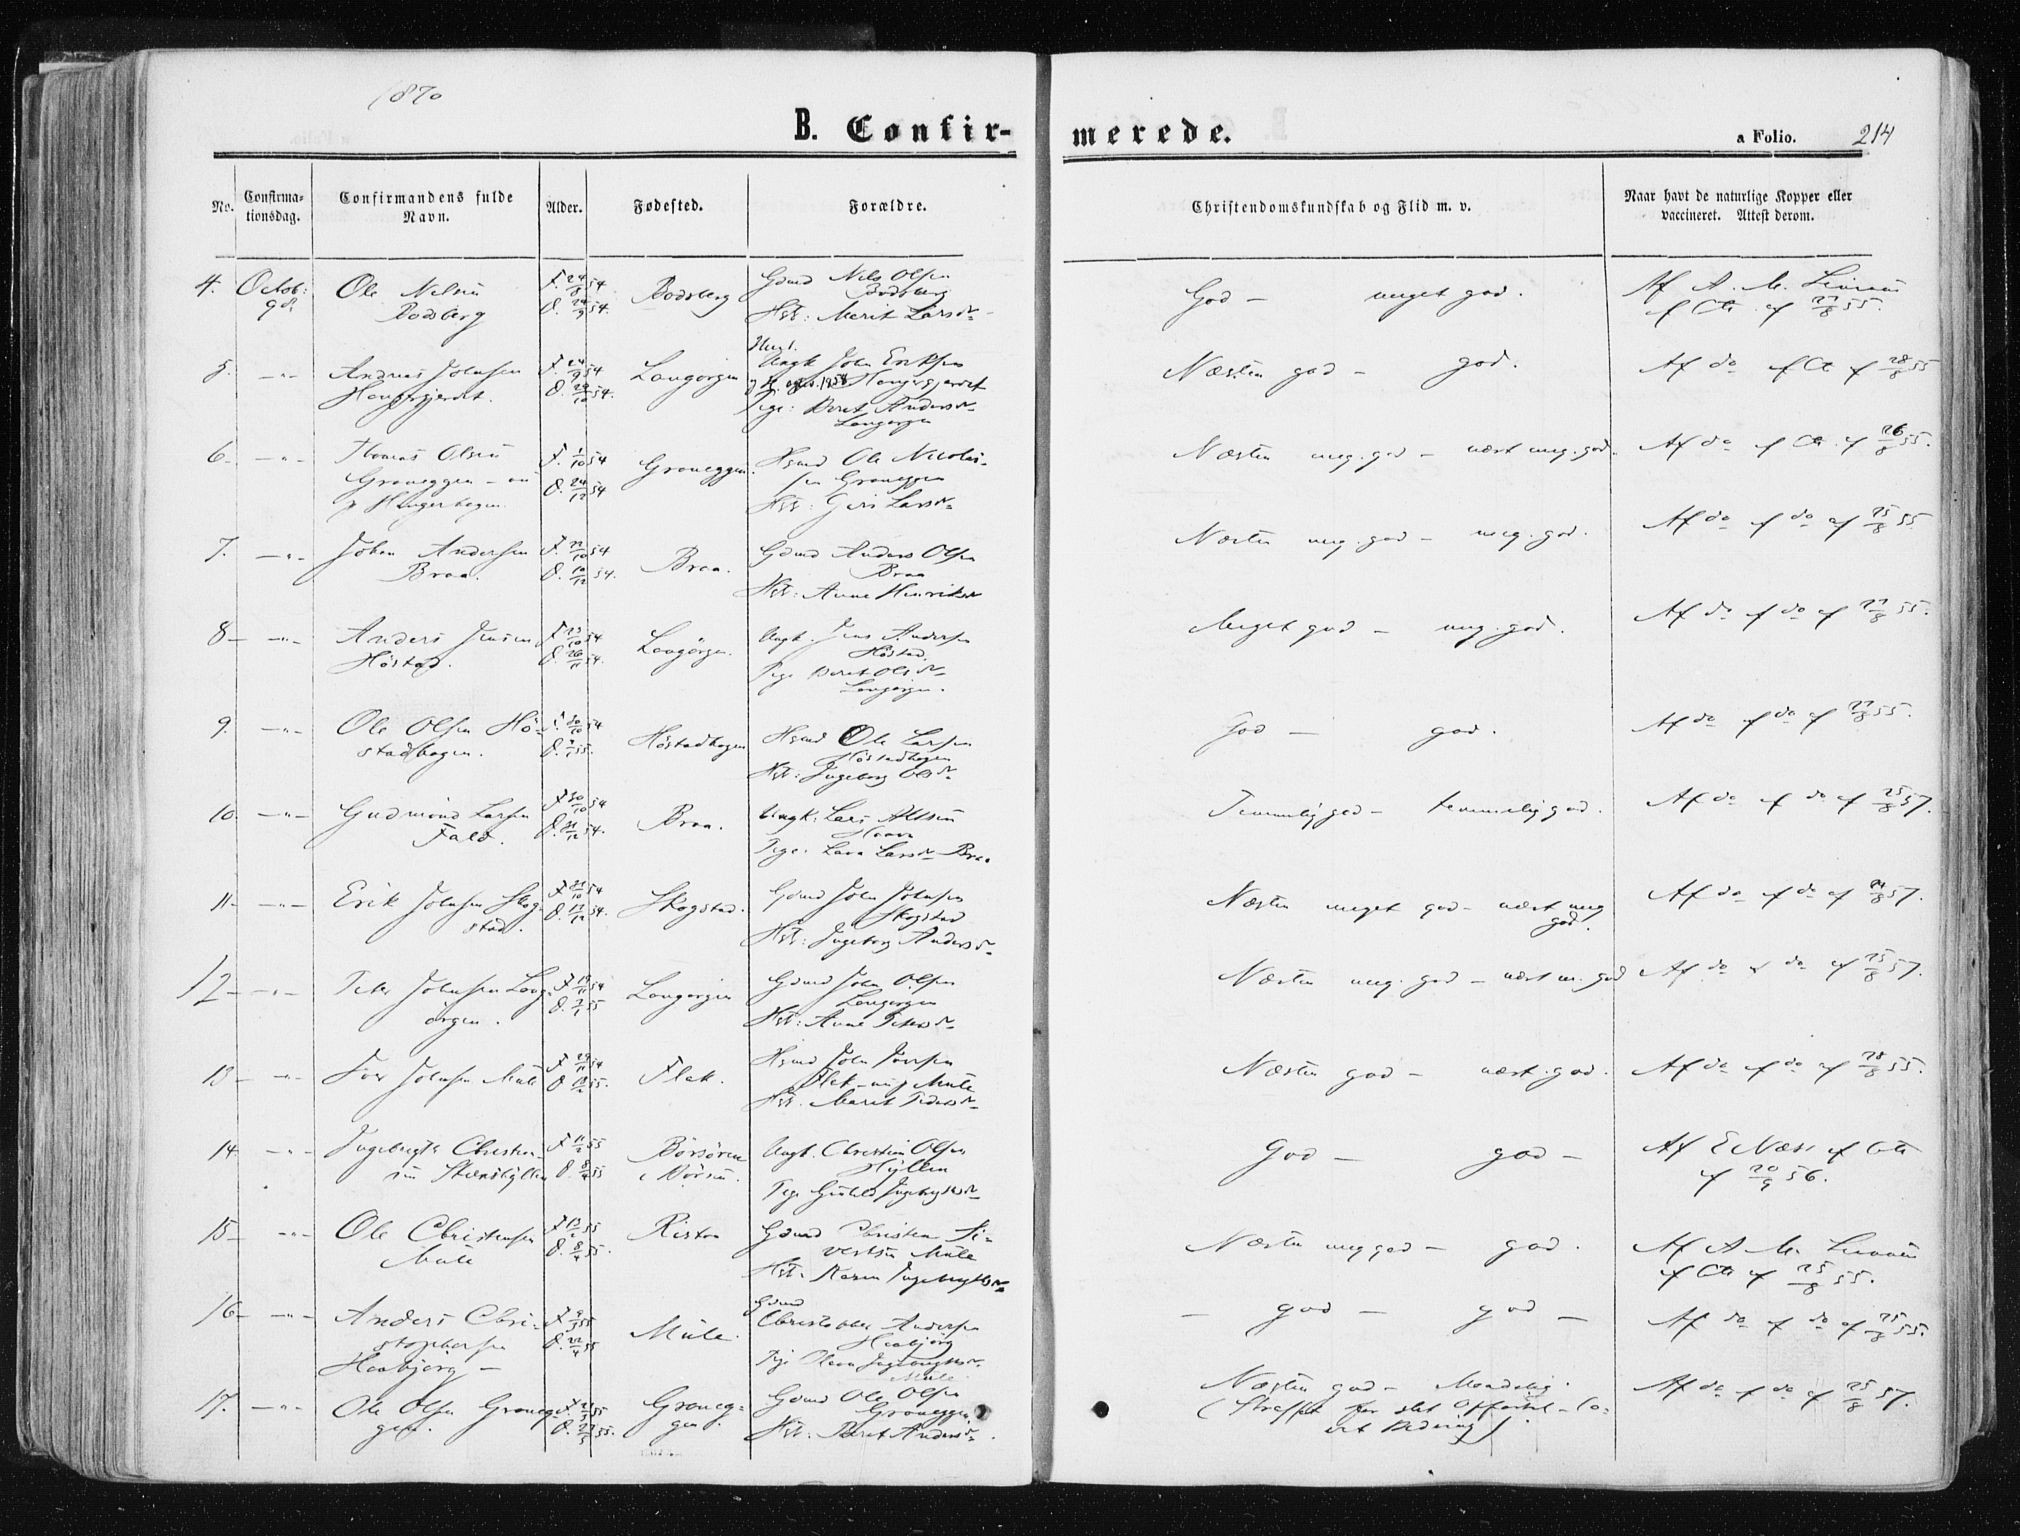 1870
B. Confir-
merede.
a Folio. 214
No. Confirma-tionsdag. Confirmandens fulde Navn. Alder. Fødested. Forældre. Christendomskundskab og Flid m. v. Naar havt de naturlige Kopper eller vaccineret. Attest derom.
4. Octob: 9de Ole Nelsen Bodsberg F. 24/8 54 D. 24/9 54. Bodsberg Gdmd Nels Olsen Bodsberg Hst: Marit Larsdr God – meget god. Af A. M. af 27/8 55.
5. –"– Andreas Johnsen F. 24/9 54 D. 29/10 54. Langørgen Ungk John Eriksen Pige: Beret Andersdr Langørgen Næsten god – god. Af do af 28/8 55
6. –"– Thomas Olsen Grøneggen – nu p Haugerhagen. F. 1/10 54 D. 24/12 54 Grøneggen. Hsmd Ole Nicolai-sen Grøneggen Hst: Guri Larsdr Næsten meg. god – næst meg. god. Af do af 26/8 55.
7. –"– Johan Andersen Braa. F. 22/10 54 D. 10/12 54. Braa. Gdmd Anders Olsen Braa Hst: Anne Henriksdr Næsten meg. god – meg. god. Af do af do af 25/8 55.
8 – –"– Anders Jensen Höstad. F. 23/10 54 D. 26/11 54. Langörgen. Ungk. Jens Andersen Höstad. Pige Beret Olsdr Langørgen. Meget god – meg. god. Af do af do af 27/8 55.
9. –"– Ole Olsen Hö-stadhagen. F. 30/10 54 D. 1/1 55. Höstadhagen Hsmd Ole Larsen Höstadhagen Hst: Ingeborg Olsdr God – god. Af do af do af 27/8 55.
10. –"– Gudmund Larsen Fald. F. 30/10 54 D. 31/12 54. Braa. Ungk: Lars Pige: Larsdr Braa Temmelig god – temmelig god. Af do af do af 25/8 57.
11. –"– Erik Johnsen Skog-stad. F. 31/10 54 D. 17/12 54. Skogstad. Gdmd John Johnsen Skogstad Hst: Ingeborg Andersdr Næsten meget god – næst meg god. Af do af do af 24/8 57.
12 – –"– Peter Johnsen Lang-örgen. D. 7/1 55 Langørgen Gdmd John Olsen Langørgen Hst: Anne Petersdr Næsten meg. god – næst m. god Af do af do af 25/8 57.
13 – –"– Iver Johnsen Mule F. 29/11 54 Flak. Hsmd John Iversen Flak – nu p Mule Hst: Marit Pedersdr Næsten god – næst. god. Af do af do af 28/8 55.
14 –"– Ingebrigt Christen-sen F. 11/2 55 D. 8/4 55 Börsören i Börsen. Ungk. Christen Olsen Hyllen Pige Ingebrigtsdr God – god – Af E Næss af 20/9 56.
15 – –"– Ole Christensen Mule F. 13/2 55 D. 8/4 55. Ristan Gdmd Christen Si-vertsen Mule Hst. Karen Ingebrigtsdr Næsten meg god – god. Af A. M. af 25/8 55.
16 – –"– Anders Chri-stophersen Haabjörg – F. 9/3 55 D. 22/4 55 Mule. Gdmd Christopher Andersen Haabjörg Pige Olava Ingebrigtsdr Mule – god – god – Af do af do af 25/8 55.
17. –"– Ole Olsen Grøneg-gen. F. 21/3 55 Grøneg-gen. Gdmd Ole Olsen Grøneggen Hst: Beret Andersdr. Næsten god – Maadelig. (Straffet for slet Opførsel – lo-vet Bedring) Af do af do af 25/8 57.